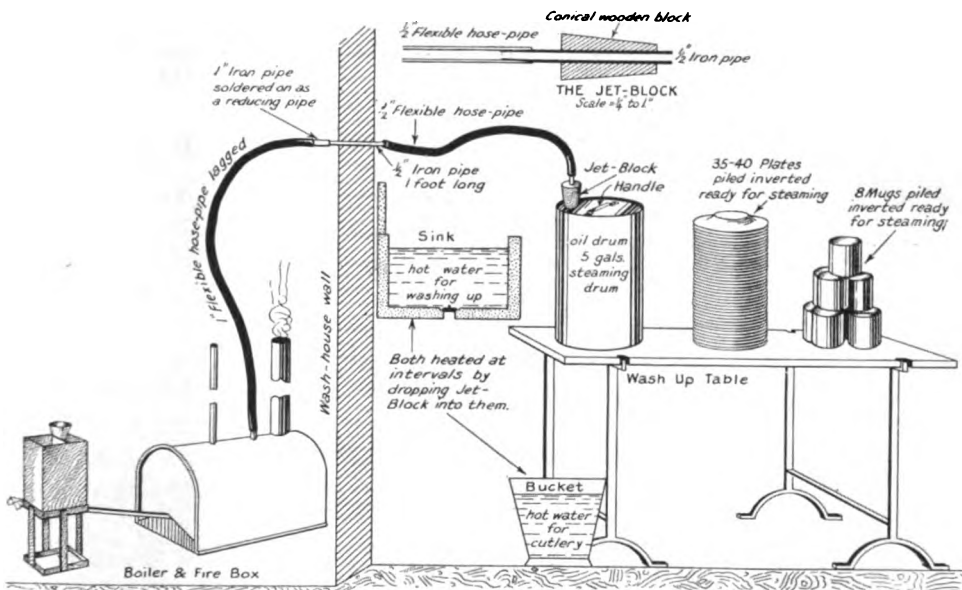 Conical wooden block
½" Flexible hose-pipe
½" Iron pipe
THE JET-BLOCK
Scale = ¼" to 1."
1" Iron pipe
soldered on as
a reducing pipe
½" Flexible hose-pipe
½" Iron pipe
1 foot long
1" flexible hose-pipe lagged
Wash-house wall
Jet-Block
Handle
35-40 Plates
piled inverted
ready for steaming
8 Mugs piled
inverted ready
for steaming
Sink
hot water
for
washing up
oil drum
5 gals.
steaming
drum
Both heated at
intervals by
dropping Jet-
Block into them.
Wash Up Table
Bucket
hot water
for
cutlery
Boiler & Fire Box